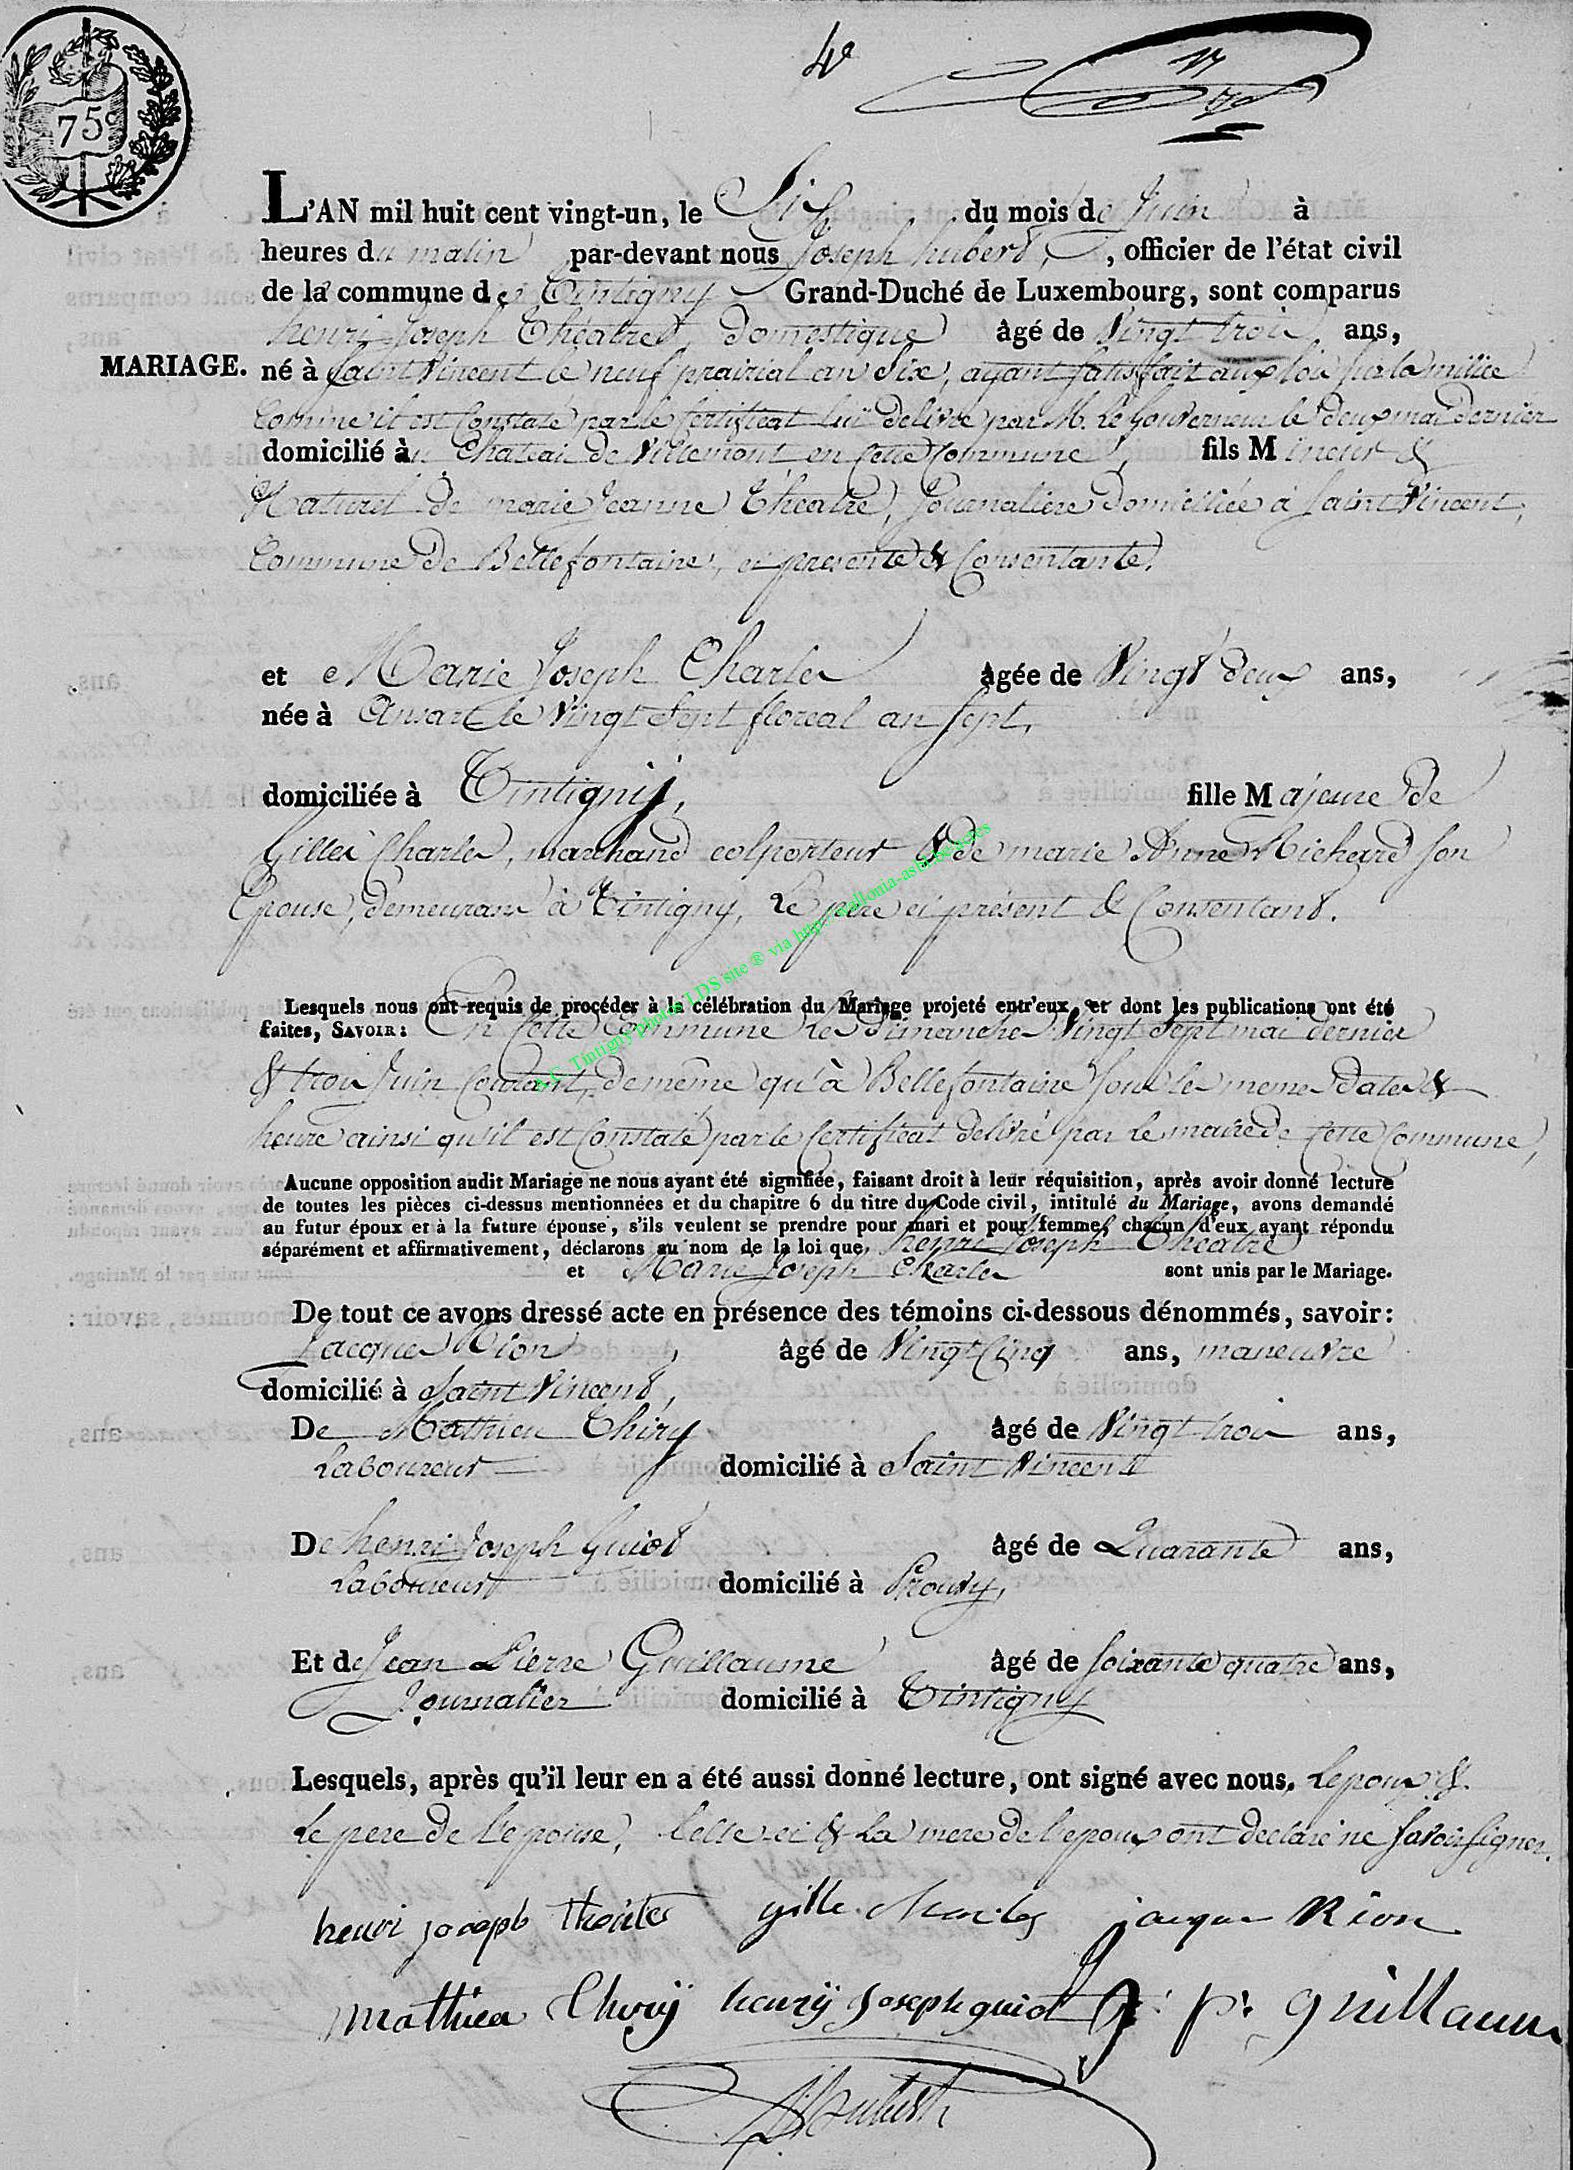 75c
4e
17
L'AN mil huit cent vingt-un, le Six du mois de Juin à
heures du matin par-devant nous Joseph hubert, officier de l'état civil
de la commune de Tintigny Grand-Duché de Luxembourg, sont comparus
henri Joseph Théatre, domestique âgé de Vingt trois ans,
MARIAGE. né à Saint Vincent le neuf prairial an Six, ayant satisfait aux lois sur la milice
Comme il est Constaté par le Certificat lui délivré par M. Le Gouverneur le deux mai dernier
domicilié au Chateau de Villemont en Cette Commune, fils Mineur &
Naturel de marie Jeanne Théatre, Journalière domiciliée à Saint Vincent,
Commune de Bellefontaine, ci presente & Consentante.
et Marie Joseph Charles âgée de Vingt deux ans,
née à Ansart le Vingt Sept floreal an Sept,
domiciliée à Tintigny, fille Majeure de
Gilles Charles, marchand colporteur & de marie Anne Richard son
Epouse, demeurant à Tintigny, Le père ci présent & Consentant.
Lesquels nous ont requis de procéder à la célébration du Mariage projeté entr'eux, et dont les publications ont été
faites, SAVOIR: En Cette Commune les Dimanches Vingt Sept mai dernier
& trois Juin Courant, de même qu'à Bellefontaine sous les memes dates &
heure ainsi qu'il est Constaté par le Certificat delivré par le maire de Cette Commune,
Aucune opposition audit Mariage ne nous ayant été signifiée, faisant droit à leur réquisition, après avoir donné lecture
de toutes les pièces ci-dessus mentionnées et du chapitre 6 du titre du Code civil, intitulé du Mariage, avons demandé
au futur époux et à la future épouse, s'ils veulent se prendre pour mari et pour femme, chacun d'eux ayant répondu
séparément et affirmativement, déclarons au nom de la loi que henri Joseph Théatre
et Marie Joseph Charles sont unis par le Mariage.
De tout ce avons dressé acte en présence des témoins ci-dessous dénommés, savoir:
Jacques Rion, âgé de Vingt Cinq ans, maneuvre
domicilié à Saint Vincent,
De Mathieu Thiry âgé de Vingt trois ans,
Laboureur domicilié à Saint Vincent
De henri Joseph Guiot âgé de Quarante ans,
Laboureur domicilié à Prouvy,
Et de Jean Pierre Guillaume âgé de soixante quatre ans,
Journalier domicilié à Tintigny
Lesquels, après qu'il leur en a été aussi donné lecture, ont signé avec nous, Lepoux &
Le pere de L'epouse, Celle-ci & La mere de l'epoux ont declaré ne savoir signer.
henri joseph gille Charles jacque Rion
mathieu Thiry henrÿ Joseph guiot J: p: guillaume
Hubert
A.C. Tintigny photos LDS site ® via http://wallonia-asbl.be/actes